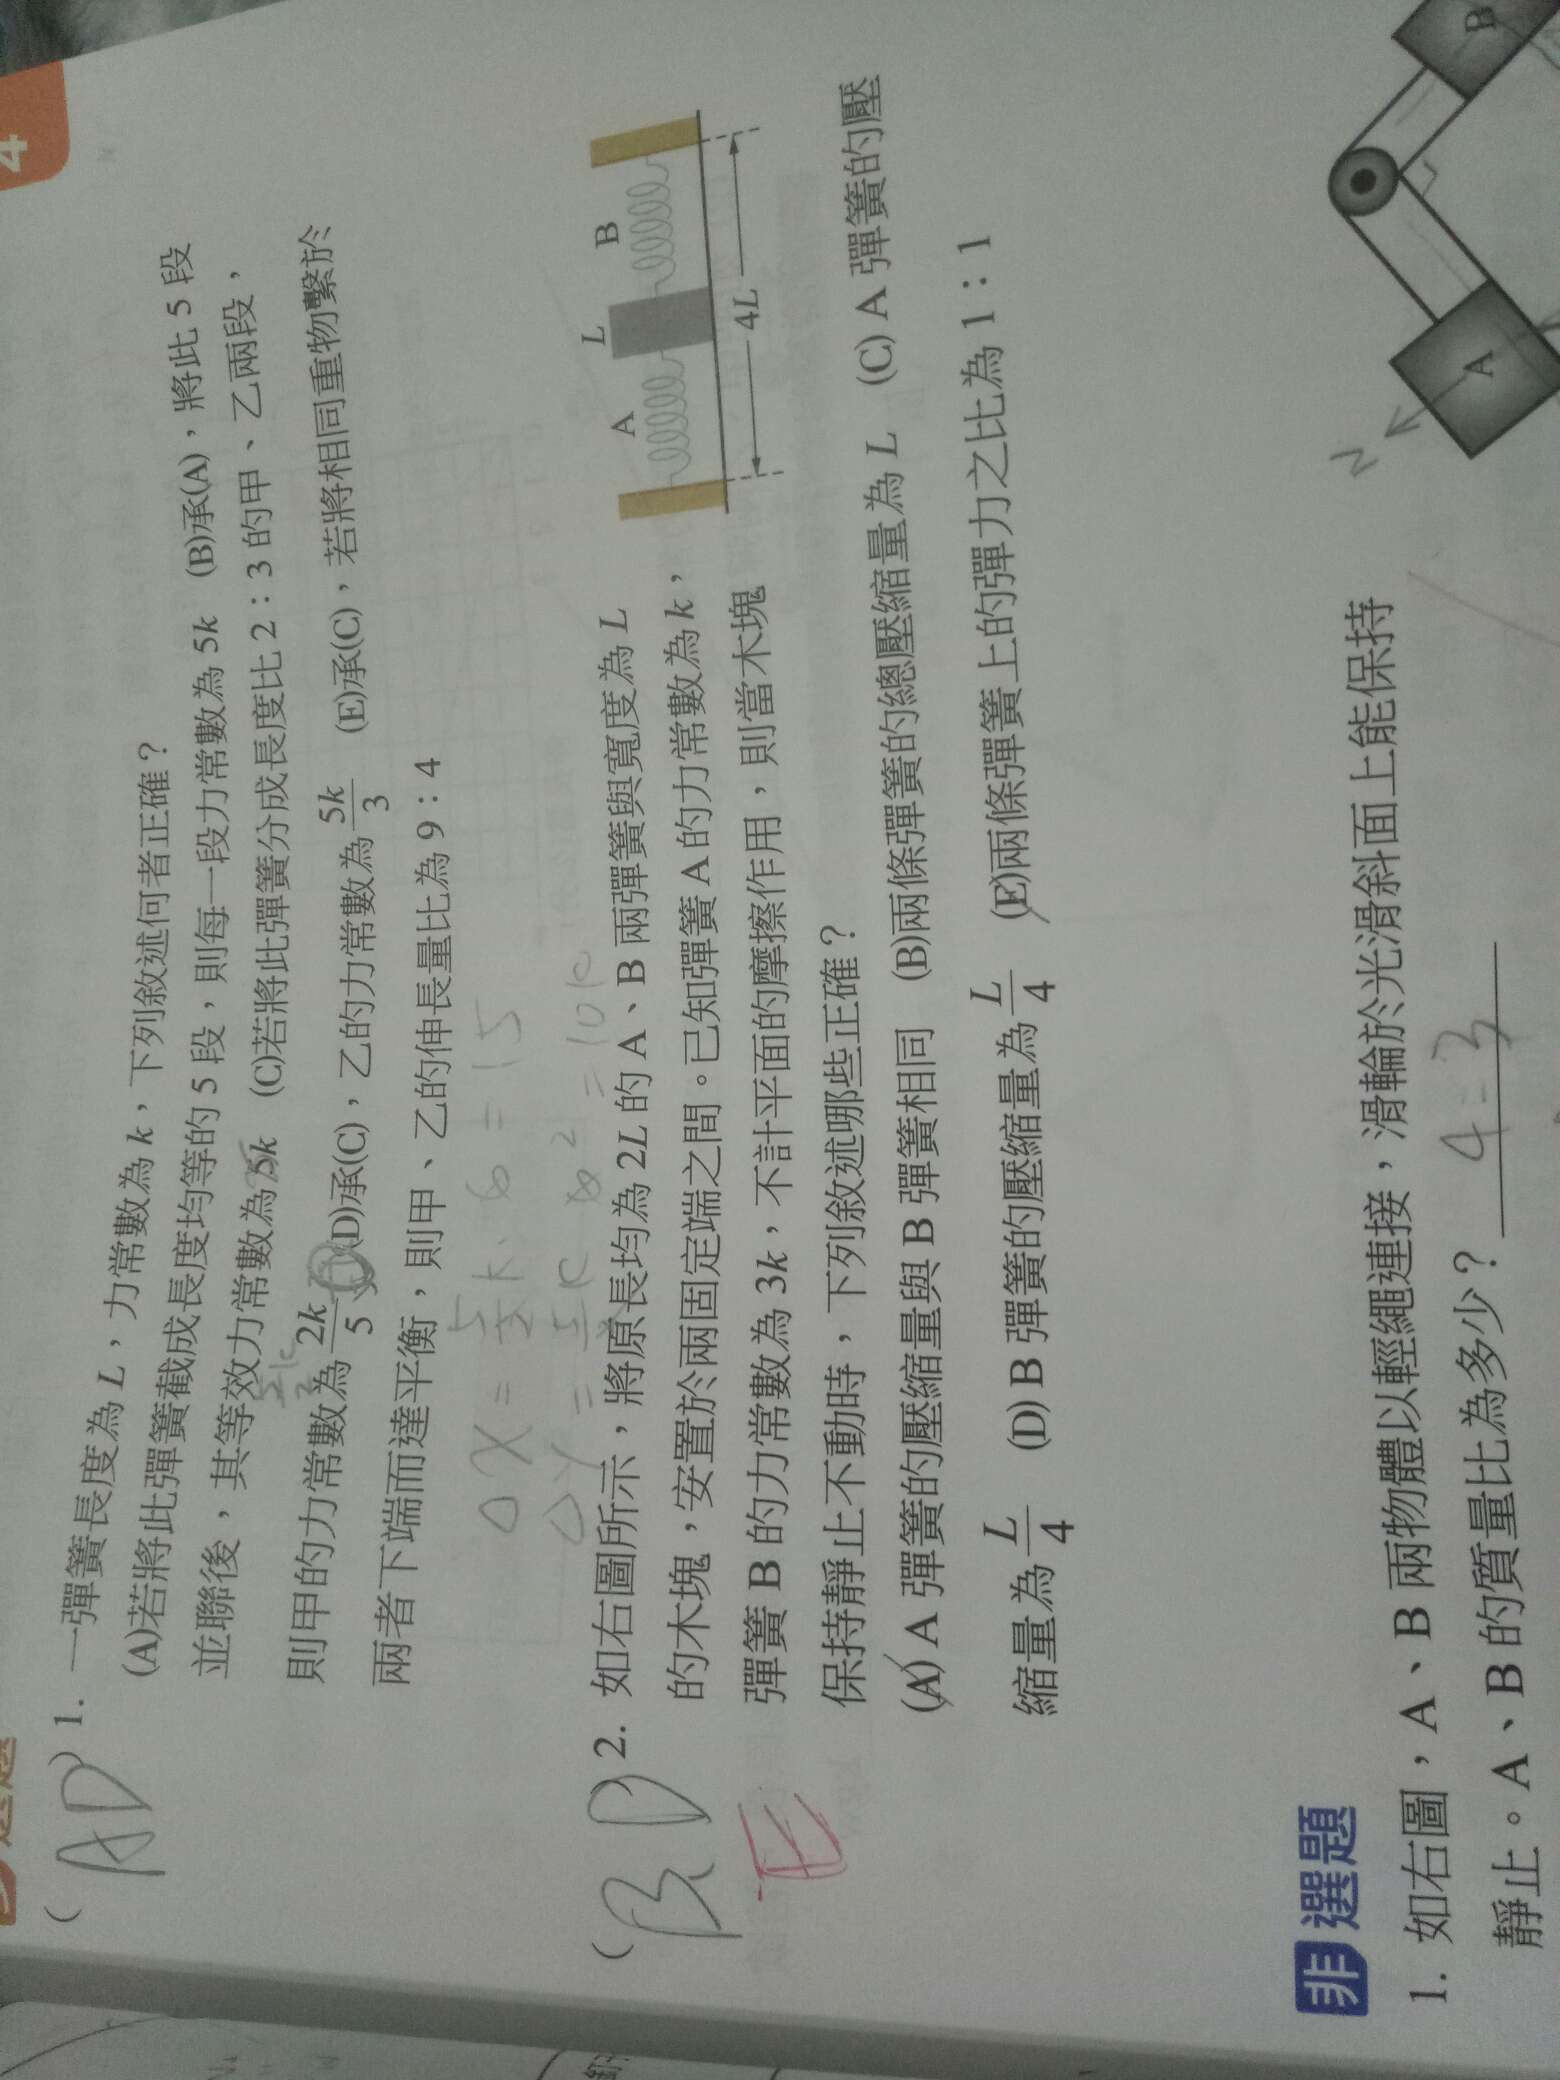 4
選題
( AD ) 1. 一彈簧長度為 L，力常數為 k，下列敘述何者正確？
(A)若將此彈簧截成長度均等的 5 段，則每一段力常數為 5k (B)承(A)，將此 5 段
並聯後，其等效力常數為 5k (C)若將此彈簧分成長度比 2：3 的甲、乙兩段，
則甲的力常數為 2k/5 (D)承(C)，乙的力常數為 5k/3 (E)承(C)，若將相同重物繫於
兩者下端而達平衡，則甲、乙的伸長量比為 9：4
( BD ) 2. 如右圖所示，將原長均為 2L 的 A、B 兩彈簧與寬度為 L
E
的木塊，安置於兩固定端之間。已知彈簧 A 的力常數為 k，
彈簧 B 的力常數為 3k，不計平面的摩擦作用，則當木塊
保持靜止不動時，下列敘述哪些正確？
(A) A 彈簧的壓縮量與 B 彈簧相同 (B)兩條彈簧的總壓縮量為 L (C) A 彈簧的壓
縮量為 L/4 (D) B 彈簧的壓縮量為 L/4 (E)兩條彈簧上的彈力之比為 1：1
A L B
4L
非選題
1. 如右圖，A、B 兩物體以輕繩連接，滑輪於光滑斜面上能保持
靜止。A、B 的質量比為多少？ 4：3
A
B
N